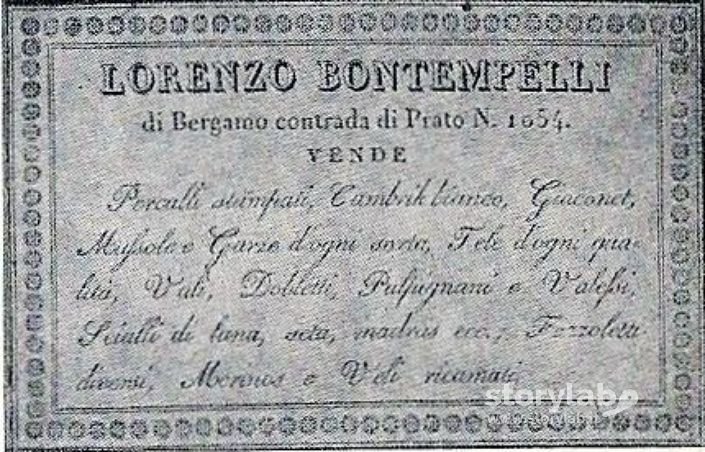 LORENZO BONTEMPELLI
di Bergamo contrada di Prato N. 1654.
VENDE
Percalli stampati, Cambrik bianco, Giaconet,
Mussole e Garze d'ogni sorta, Tele d'ogni qua-
lità, Veli, Dobletti, e
Scialli di lana, seta, madras ecc., Fazzoletti
diversi, Merinos e Veli ricamati
storylab